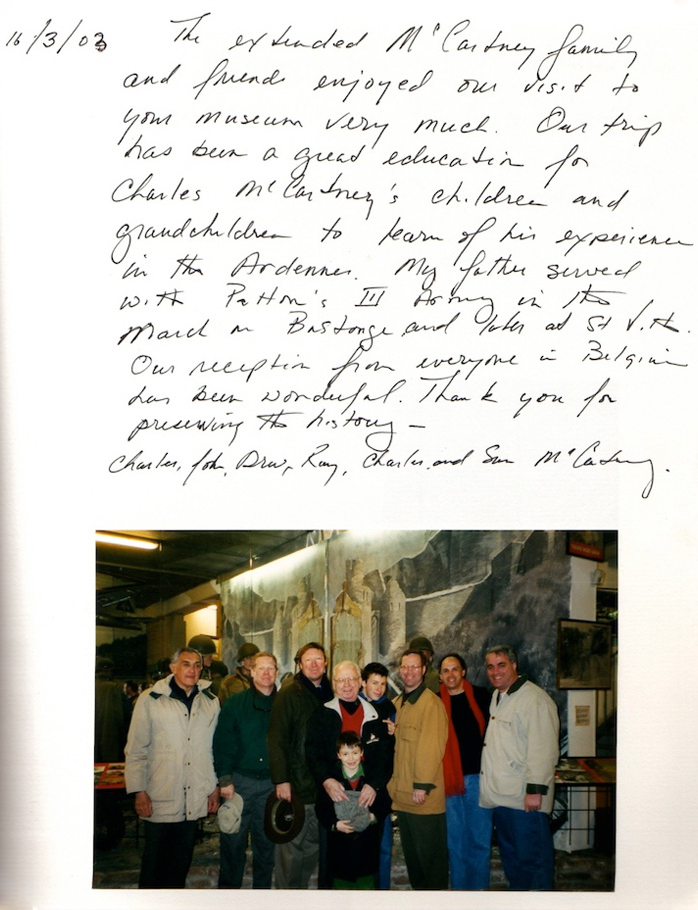 16/3/03 The extended McCartney family
and friends enjoyed our visit to
your museum very much. Our trip
has been a great education for
Charles McCartney's children and
grandchildren to learn of his experience
in the Ardennes. My father served
with Patton's III Army in the
March on Bastonge and later at St Vith.
Our reception from everyone in Belgium
has been wonderful. Thank you for
preserving the history —
Charles, John, Drew, Ray, Charles, and Sam McCartney.